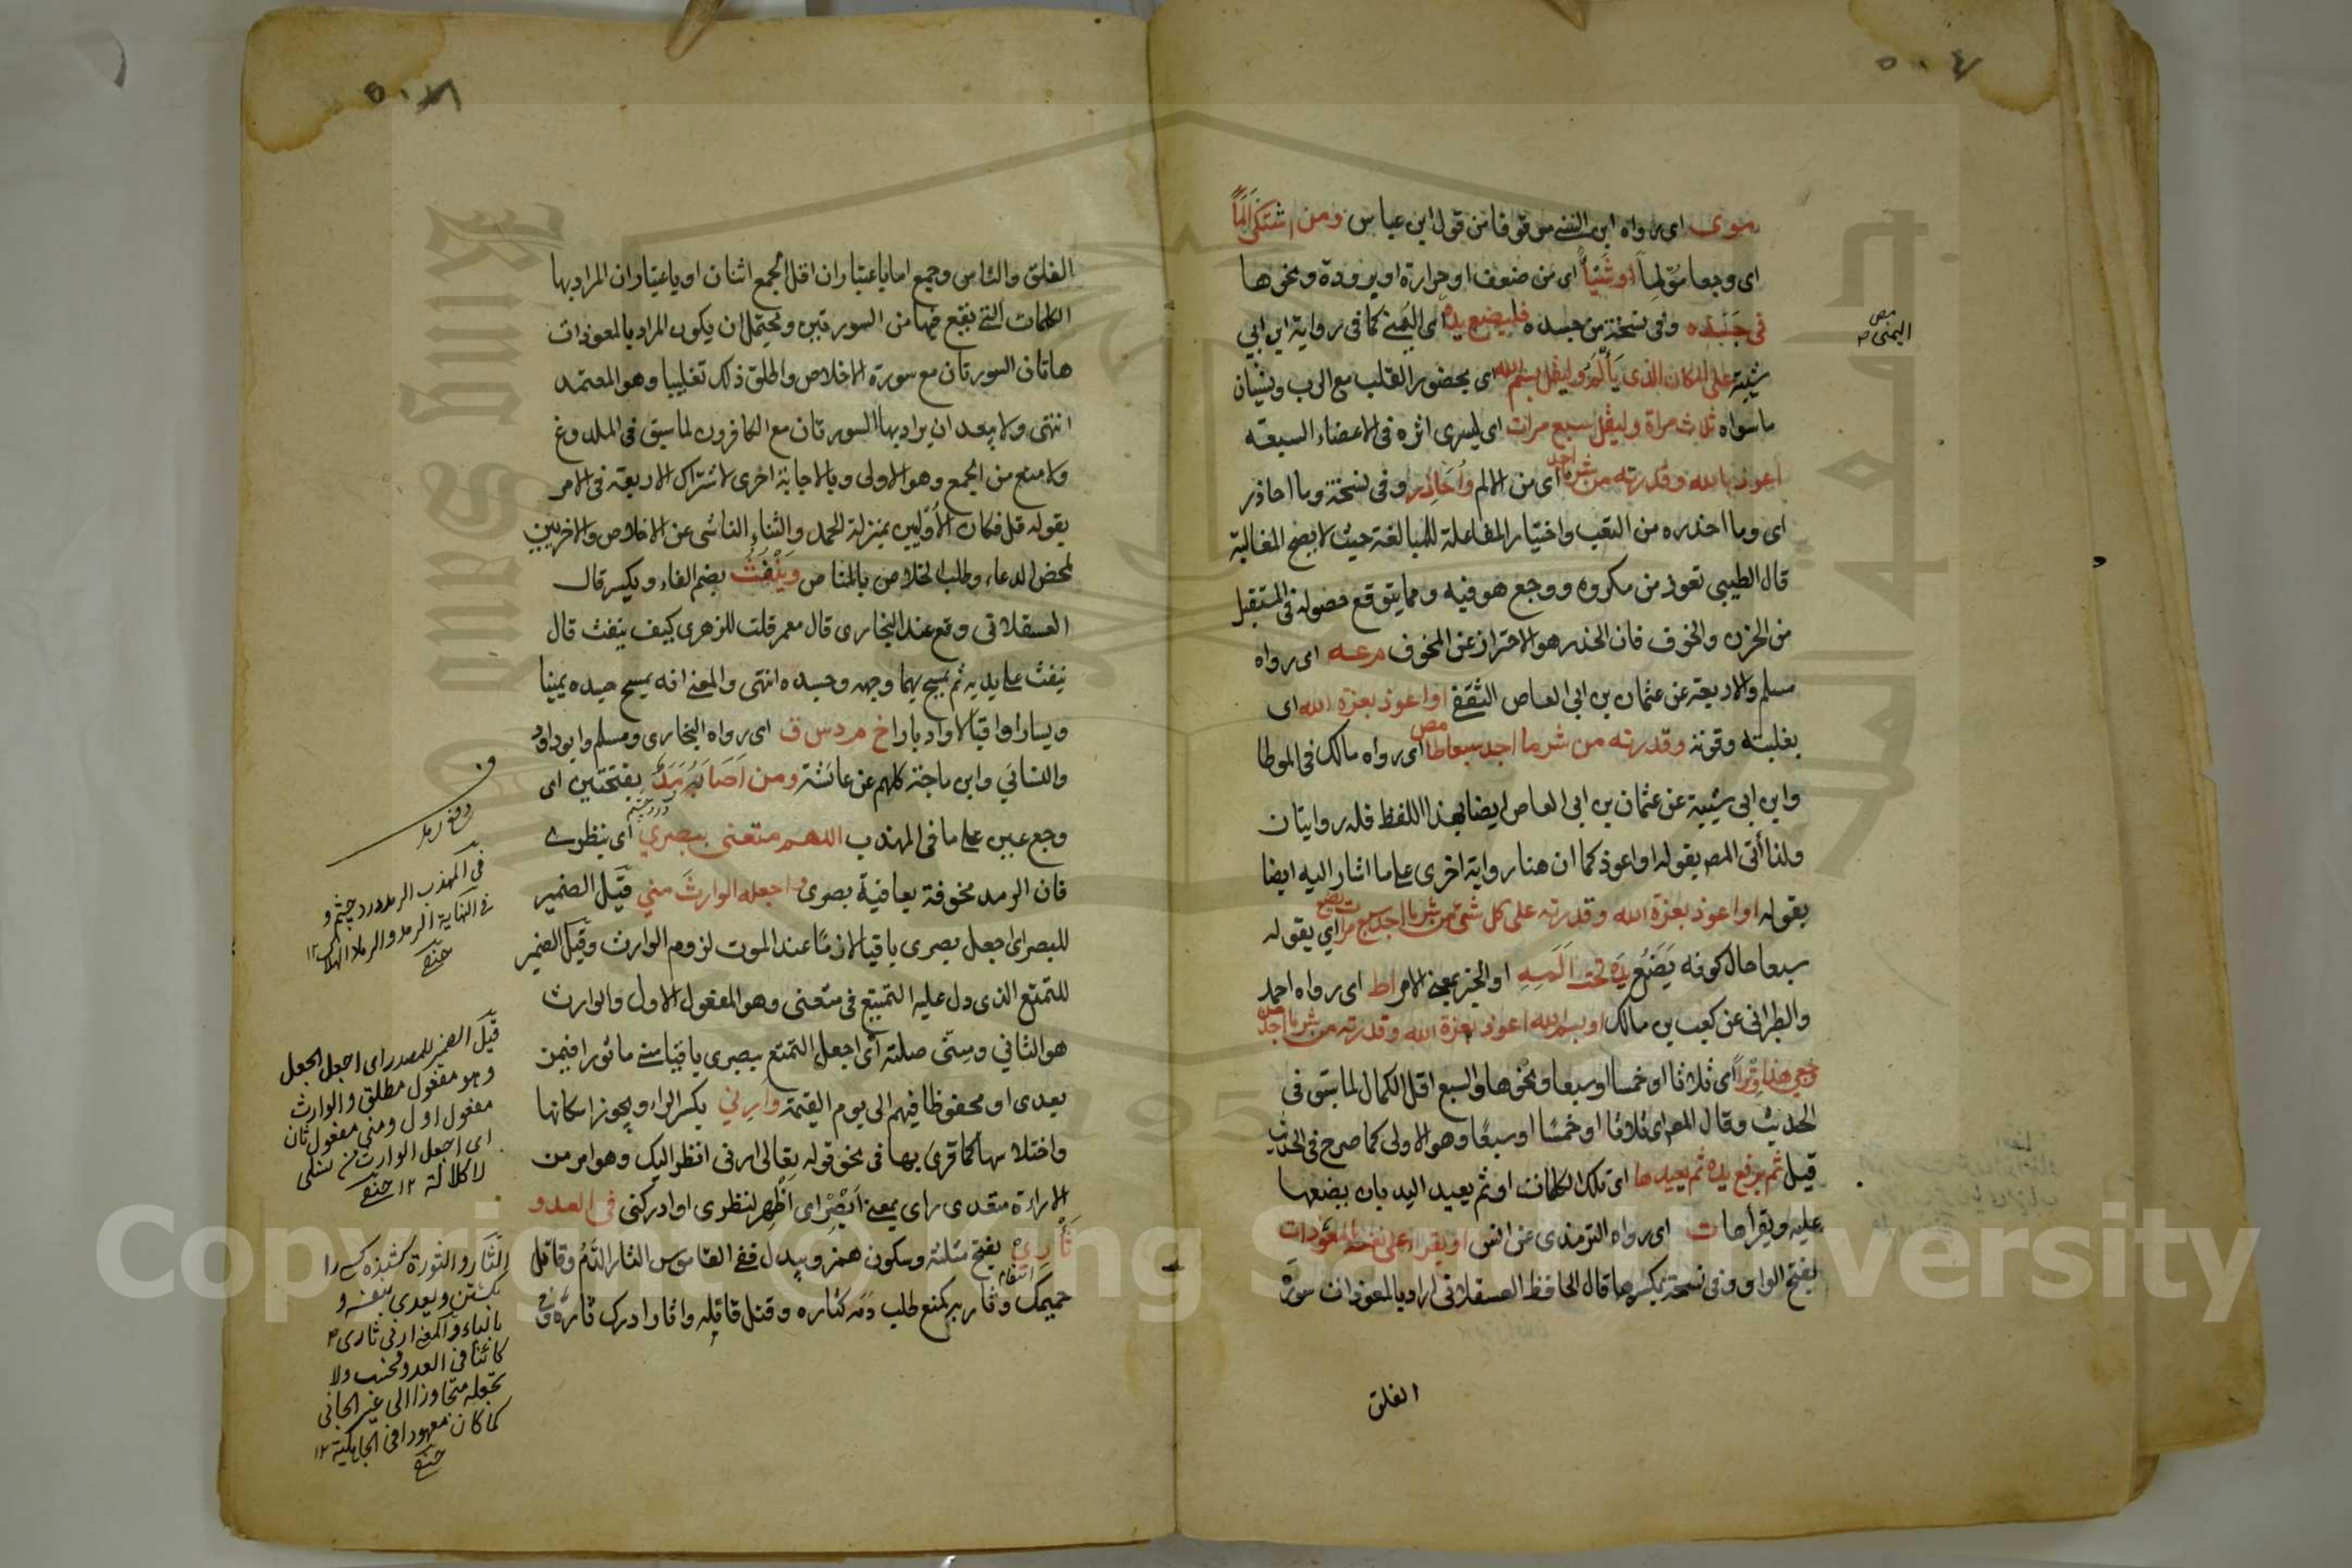 ٥٠٤
موى اى رواه ابن السنى موقوفا من قول ابن عباس ومن اشتكى الما
اى وجعا مؤلما او شيئا اى من ضعف او حرارة او برودة ونحوها
فى جسده وفى نسخة من جسده فليضع يده اى اليمنى كما فى رواية ابن ابي
شيبة على المكان الذى يألمه وليقل بسم الله اى بحضور القلب مع الرب ونسيان
ما سواه ثلاث مراة وليقل سبع مرات اى ليسرى اثره فى الاعضاء السبعة
اعوذ بالله وقدرته من شر ما اجد اى من الالم وأحاذر وفى نسخة وما احاذر
اى وما احذره من التعب واختيار المفاعلة للمبالغة حيث لا يصح المغالبة
قال الطيبي تعوذ من مكروه ووجع هو فيه ومما يتوقع حصوله فى المستقبل
من الحزن والخوف فان الحذر هو الاحتراز عن المخوف مرعه اى رواه
مسلم والاربعة عن عثمان بن ابى العاص الثقفى او اعوذ بعزة الله اى
بغلبته وقوته وقدرته من شر ما اجد سبعا طا مص اى رواه مالك فى الموطا
وابن ابى شيبة عن عثمان بن ابى العاص ايضا بهذا اللفظ فله روايتان
ولذا أتى المص بقوله او اعوذ كما ان هنا رواية اخرى على ما اشار اليه ايضا
بقوله او اعوذ بعزة الله وقدرته على كل شئ من شر ما اجد سبع مرات يضع اى يقوله
سبعا حال كونه يضع يده تحت المه او الخبر بمعنى الامر اط اى رواه احمد
والطبرانى عن كعب بن مالك او بسم الله اعوذ بعزة الله وقدرته من شر ما اجد من
وجعى هذا وترا اى ثلاثا او خمسا او سبعا ونحوها والسبع اقل الكمال لما سبق فى
الحديث وقال المص اى ثلاثا او خمسا او سبعا وهو الاولى كما صرح فى الحديث
قيل ثم يرفع يده ثم يعيدها اى تلك الكلمات او ثم يعيد اليد بان يضعها
عليه ويقرأها ت اى رواه الترمذى عن انس او يقرأ على نفسه بالمعوذات
بفتح الواو وفى نسخة بكسرها قال الحافظ العسقلانى اراد بالمعوذات سورة
الفلق
مص
اليمنى
الفلق والناس وجمع اما باعتبار ان اقل الجمع اثنان او باعتبار ان المراد بها
الكلمات التى يقع فيها من السورتين ويحتمل ان يكون المراد بالمعوذات
هاتان السورتان مع سورة الاخلاص واطلق ذلك تغليبا وهو المعتمد
انتهى ولا يبعد ان يراد بها السورتان مع الكافرون لما سبق فى الملدوغ
ولا منع من الجمع وهو الاولى وبالاجابة اخرى لاشتراك الاربعة فى الامر
بقوله قل فكان الأوليين بمنزلة الحمد والثناء الناشى عن الاخلاص والاخريين
لمحض الدعاء وطلب الخلاص بالمناص وينفث بضم الفاء وبكسر قال
العسقلانى وقع عند البخارى قال معمر قلت للزهرى كيف ينفث قال
ينفث على يديه ثم يمسح بهما وجهه وجسده انتهى والمعنى انه يمسح جسده يمينا
ويسارا واقبالا وادبارا خ م د س ق اى رواه البخارى ومسلم وابو داود
والنسائي وابن ماجة كلهم عن عائشة ومن أصابه رمد بفتحتين اى
وجع عين على ما فى المهذب اللهم متعنى ببصري اى بنظرى
درد چشم
فان الرمد مخوفة بعافية بصرى واجعله الوارث مني قيل الضمير
للبصر اى اجعل بصرى باقيا لازما عند الموت لزوم الوارث وقيل الضمير
للتمتع الذى دل عليه التمتيع فى متعنى وهو المفعول الاول والوارث
هو الثاني ومنى صلته أى اجعل التمتع ببصرى باقيا منى ماثورا فيمن
بعدى او محفوظا فيهم الى يوم القيمة وأرني بكسر الراء ويجوز اسكانها
واختلاسها كما قرئ بها فى نحو قوله تعالى ارنى انظر اليك وهو امر من
الاراءة متعدى راى بمعنى ابصر اى اظهر لنظرى او ادركنى فى العدو
ثأري بفتح مثلثة وسكون همز ويبدل ففى القاموس الثار الدم وقاتل
انتقام
حميمك وثار به كمنع طلب دمه كثاره وقتل قاتله واثار ادرك ثاره
دفع رمد
فى المهذب الرمد درد چشم و
فى النهاية الرمد والرمادة الهلاك ١٢
حنفى
قيل الضمير للمصدر اى اجعل الجعل
وهو مفعول مطلق والوارث
مفعول اول ومنى مفعول ثان
اى اجعل الوارث من نسلى
لا كلالة ١٢ حنفى
الثار والثورة كشنده كسے را
كشتن ويعدى بنفسه و
بالباء والمعنى ارنى ثارى
كائنا فى العدو فحسب ولا
تجعله متجاوزا الى غير الجانى
كما كان معهودا فى الجاهلية ١٢
حنفى
Copyright © King Saud University